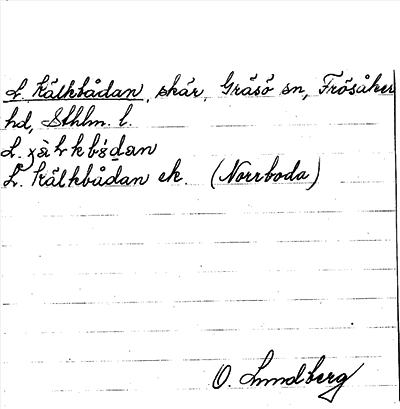 L. Kälkbådan, skär, Gräsö sn, Frösåker
hd, Sthlm. l.
L.
L. Kälkbådan ek. (Norrboda)
O. Lundberg